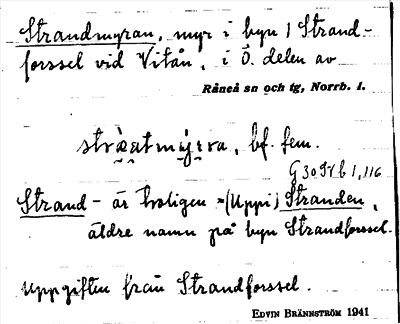 Strandmyran, myr i byn 1 Strand-
forssel vid Vitån, i Ö. delen av
Råneå sn och tg, Norrb. l.
bf. fem.
G 30 9b 1,116
Strand - är troligen = (Uppi) Stranden,
äldre namn på byn Strandforssel.
Uppgiften från Strandforssel.
EDVIN BRÄNNSTRÖM 1941